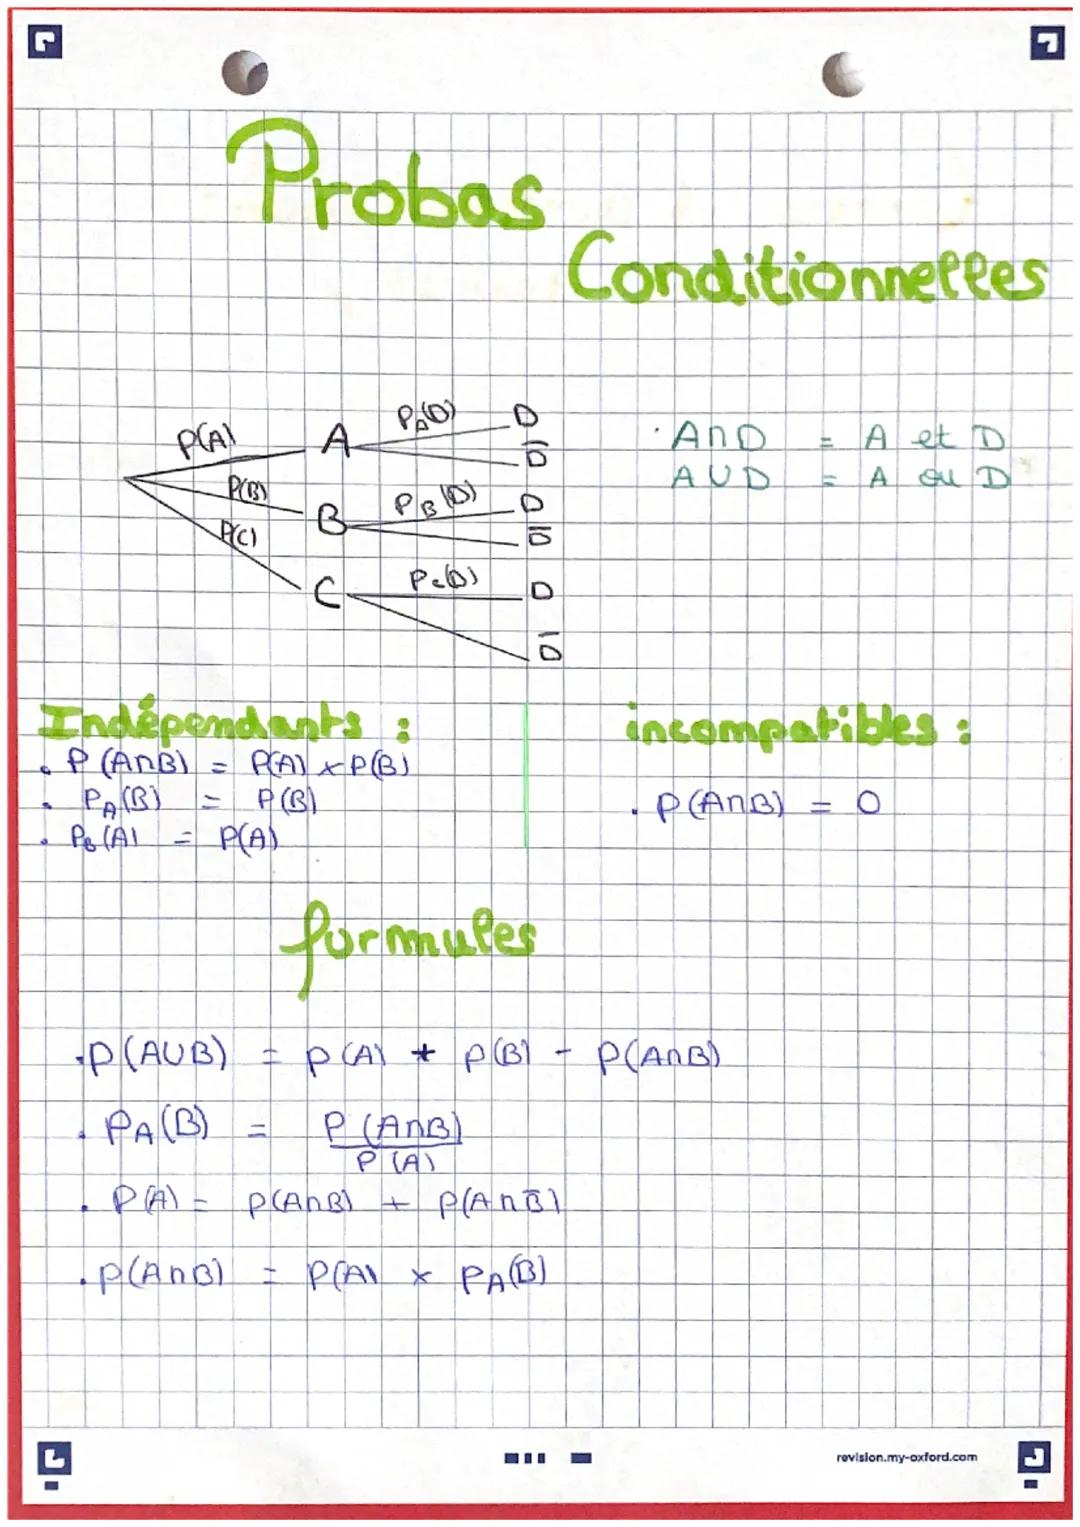 Probas
Conditionnelles
P(A) A P_A(D) D
D̅
P(B) B P_B(D) D
D̅
P(C) C P_C(D) D
D̅
· A∩D = A et D
A∪D = A ou D
Indépendants :
• P(A∩B) = P(A) × P(B)
• P_A(B) = P(B)
• P_B(A) = P(A)
incompatibles :
• P(A∩B) = 0
formules
• P(A∪B) = P(A) + P(B) - P(A∩B)
• P_A(B) = P(A∩B)
P(A)
• P(A) = P(A∩B) + P(A∩B̅)
• P(A∩B) = P(A) × P_A(B)
revision.my-oxford.com